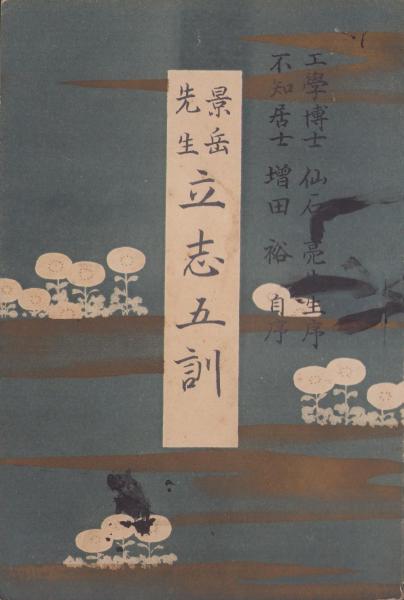 工學博士 仙石 亮先生序
不知居士 增田 裕 自序
景岳
先生
立志五訓